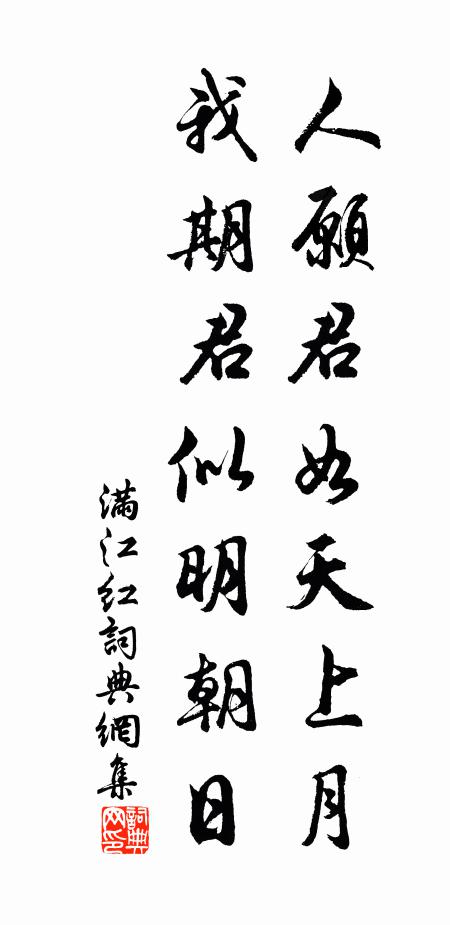 人願君如天上月
我期君似明朝日
滿江紅詞典網集
詞典
网印